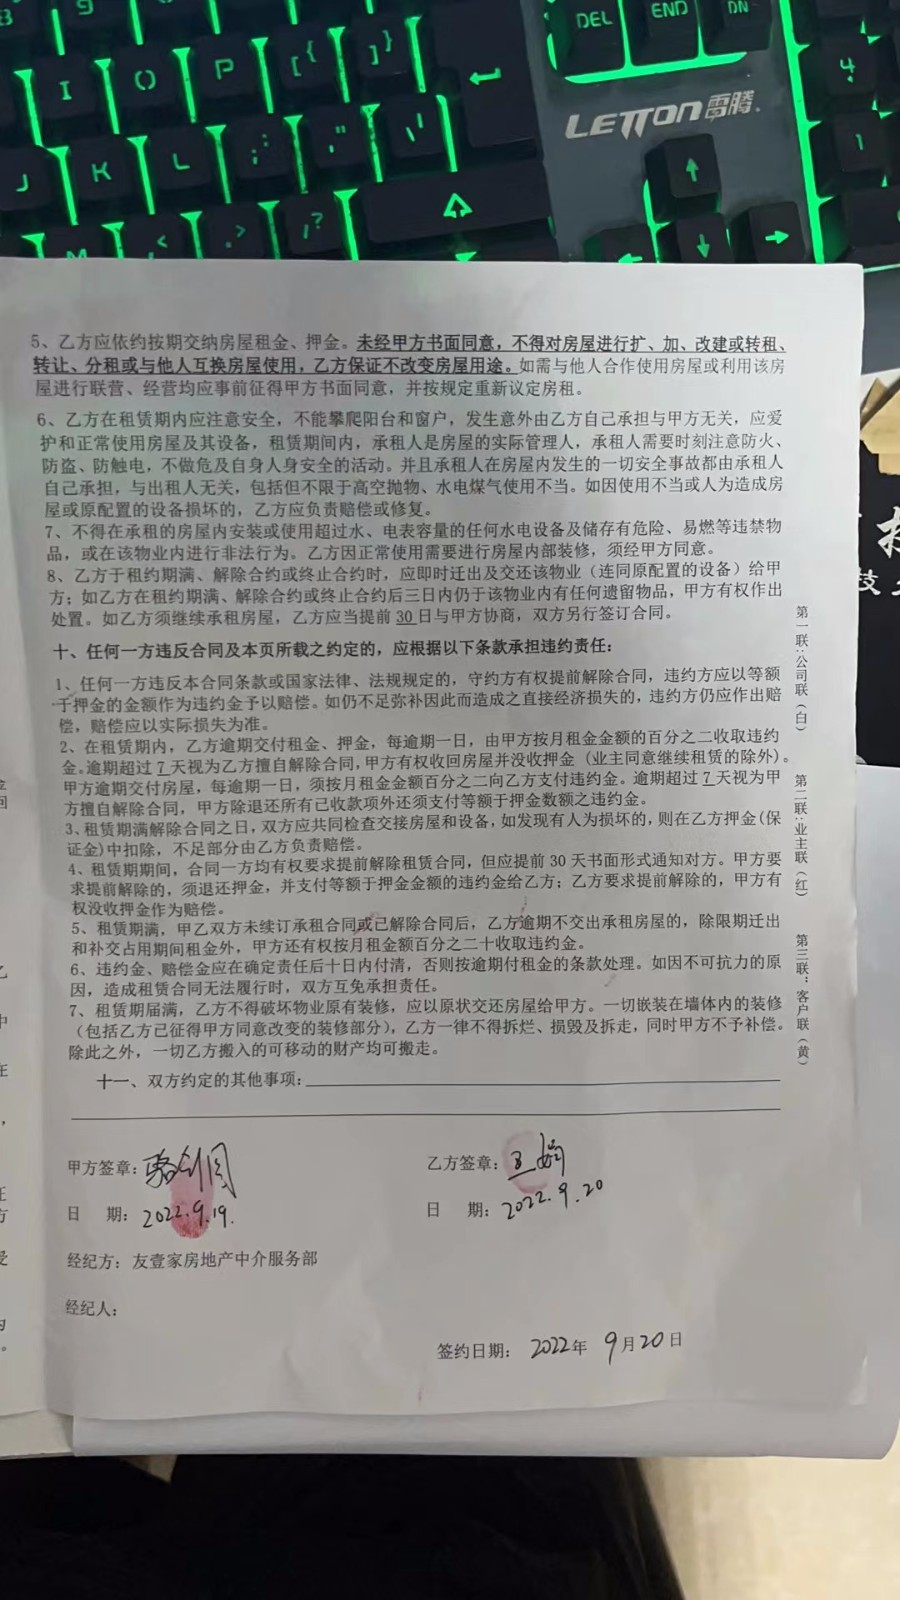 8
9
DEL
END
DN
I
O
P
[{
]}
4
LETTON 雷腾
J
K
L
;:
'"
\|
1
M
<
.>
/?
5、乙方应依约按期交纳房屋租金、押金。未经甲方书面同意，不得对房屋进行扩、加、改建或转租、
转让、分租或与他人互换房屋使用，乙方保证不改变房屋用途。如需与他人合作使用房屋或利用该房
屋进行联营、经营均应事前征得甲方书面同意，并按规定重新议定房租。
6、乙方在租赁期内应注意安全，不能攀爬阳台和窗户，发生意外由乙方自己承担与甲方无关，应爱
护和正常使用房屋及其设备，租赁期间内，承租人是房屋的实际管理人，承租人需要时刻注意防火、
防盗、防触电，不做危及自身人身安全的活动。并且承租人在房屋内发生的一切安全事故都由承租人
自己承担，与出租人无关，包括但不限于高空抛物、水电煤气使用不当。如因使用不当或人为造成房
屋或原配置的设备损坏的，乙方应负责赔偿或修复。
7、不得在承租的房屋内安装或使用超过水、电表容量的任何水电设备及储存有危险、易燃等违禁物
品，或在该物业内进行非法行为。乙方因正常使用需要进行房屋内部装修，须经甲方同意。
8、乙方于租约期满、解除合约或终止合约时，应即时迁出及交还该物业（连同原配置的设备）给甲
方；如乙方在租约期满、解除合约或终止合约后三日内仍于该物业内有任何遗留物品，甲方有权作出
处置。如乙方须继续承租房屋，乙方应当提前30日与甲方协商，双方另行签订合同。
十、任何一方违反合同及本页所载之约定的，应根据以下条款承担违约责任：
1、任何一方违反本合同条款或国家法律、法规规定的，守约方有权提前解除合同，违约方应以等额
于押金的金额作为违约金予以赔偿。如仍不足弥补因此而造成之直接经济损失的，违约方仍应作出赔
偿，赔偿应以实际损失为准。
2、在租赁期内，乙方逾期交付租金、押金，每逾期一日，由甲方按月租金金额的百分之二收取违约
金。逾期超过7天视为乙方擅自解除合同，甲方有权收回房屋并没收押金（业主同意继续租赁的除外）。
甲方逾期交付房屋，每逾期一日，须按月租金金额百分之二向乙方支付违约金。逾期超过7天视为甲
方擅自解除合同，甲方除退还所有已收款项外还须支付等额于押金数额之违约金。
3、租赁期满解除合同之日，双方应共同检查交接房屋和设备，如发现有人为损坏的，则在乙方押金(保
证金)中扣除，不足部分由乙方负责赔偿。
4、租赁期期间，合同一方均有权要求提前解除租赁合同，但应提前30天书面形式通知对方。甲方要
求提前解除的，须退还押金，并支付等额于押金金额的违约金给乙方；乙方要求提前解除的，甲方有
权没收押金作为赔偿。
5、租赁期满，甲乙双方未续订承租合同或已解除合同后，乙方逾期不交出承租房屋的，除限期迁出
和补交占用期间租金外，甲方还有权按月租金额百分之二十收取违约金。
6、违约金、赔偿金应在确定责任后十日内付清，否则按逾期付租金的条款处理。如因不可抗力的原
因，造成租赁合同无法履行时，双方互免承担责任。
7、租赁期届满，乙方不得破坏物业原有装修，应以原状交还房屋给甲方。一切嵌装在墙体内的装修
（包括乙方已征得甲方同意改变的装修部分），乙方一律不得拆烂、损毁及拆走，同时甲方不予补偿。
除此之外，一切乙方搬入的可移动的财产均可搬走。
十一、双方约定的其他事项：
甲方签章：
乙方签章：王
日 期：2022.9.19.
日 期：2022.9.20
经纪方：友壹家房地产中介服务部
经纪人：
签约日期：2022年9月20日
第一联：公司联（白）
第二联：业主联（红）
第三联：客户联（黄）
技